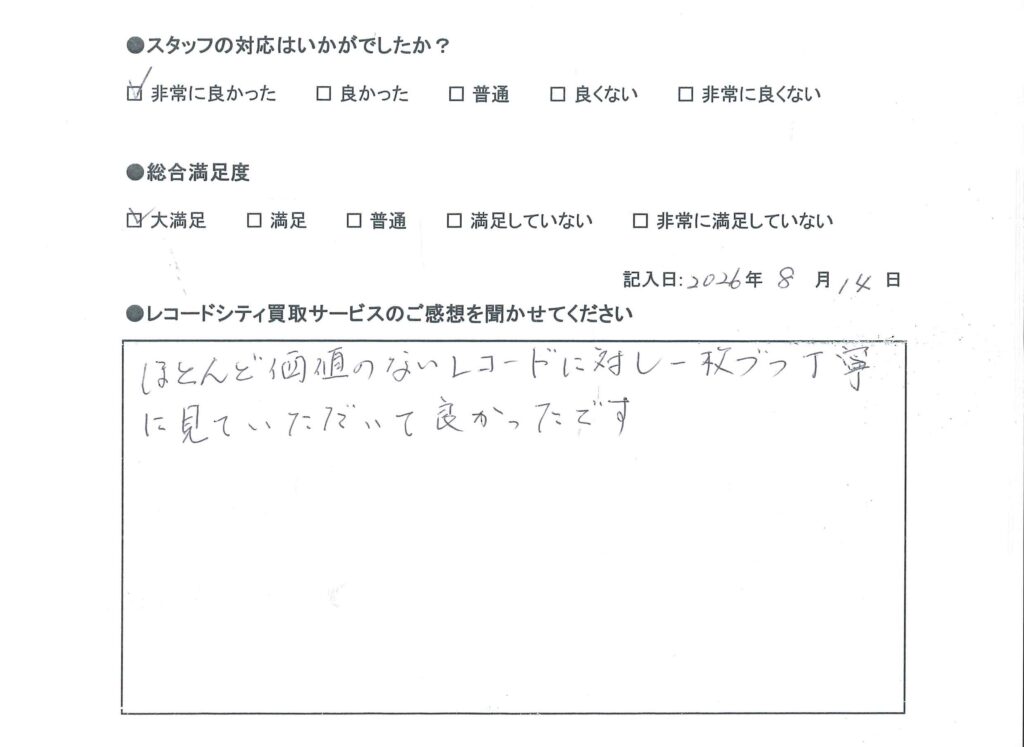 ●スタッフの対応はいかがでしたか？
☑ 非常に良かった □ 良かった □ 普通 □ 良くない □ 非常に良くない
●総合満足度
☑ 大満足 □ 満足 □ 普通 □ 満足していない □ 非常に満足していない
記入日:2026年 8 月 14 日
●レコードシティ買取サービスのご感想を聞かせてください
ほとんど価値のないレコードに対し一枚づつ丁寧
に見ていただいて良かったです